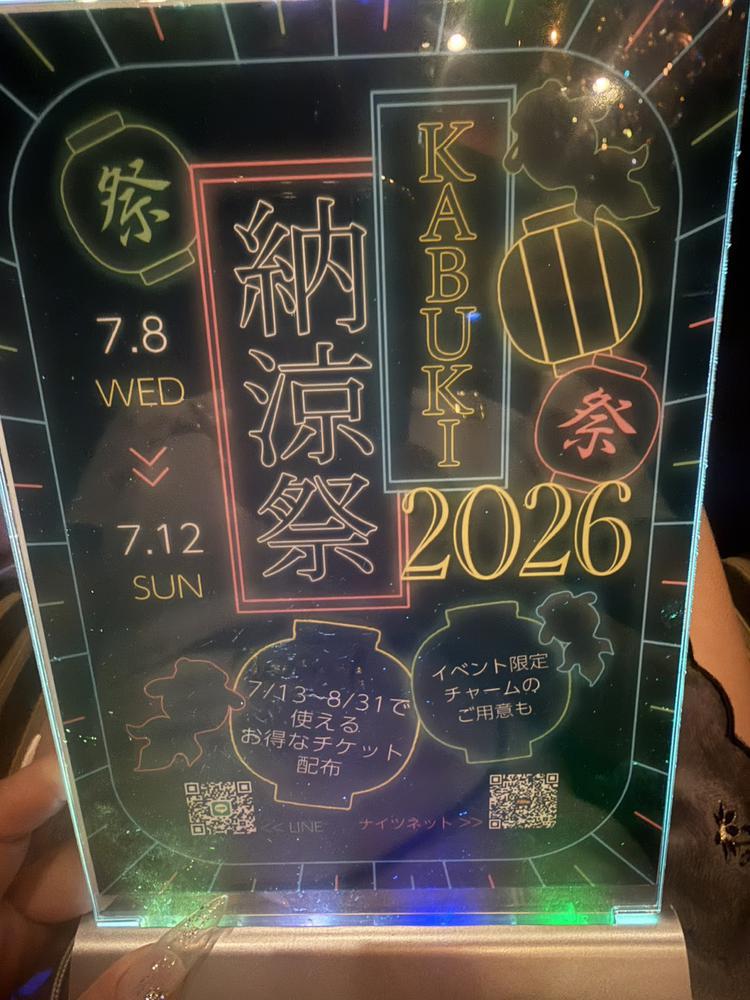 祭
KABUKI
納涼祭
2026
祭
7.8
WED
7.12
SUN
7/13~8/31で
使える
お得なチケット
配布
イベント限定
チャームの
ご用意も
<< LINE
ナイツネット >>